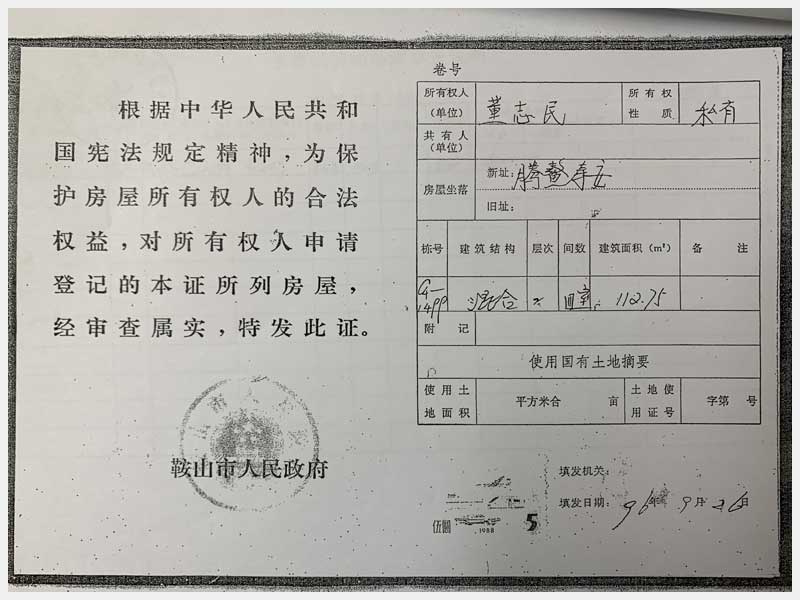 根据中华人民共和
国宪法规定精神，为保
护房屋所有权人的合法
权益，对所有权人申请
登记的本证所列房屋，
经审查属实，特发此证。
鞍山市人民政府
卷号
所有权人
（单位）
董志民
所有权
性质
私有
共有人
（单位）
房屋坐落
新址：腾鳌
旧址：
栋号 建筑结构 层次 间数 建筑面积（m²） 备注
混合 四室 112.75
附记
使用国有土地摘要
使用土
地面积
平方米合 亩
土地使
用证号
字第 号
填发机关：
填发日期：96年9月26日
伍圆 1988 5